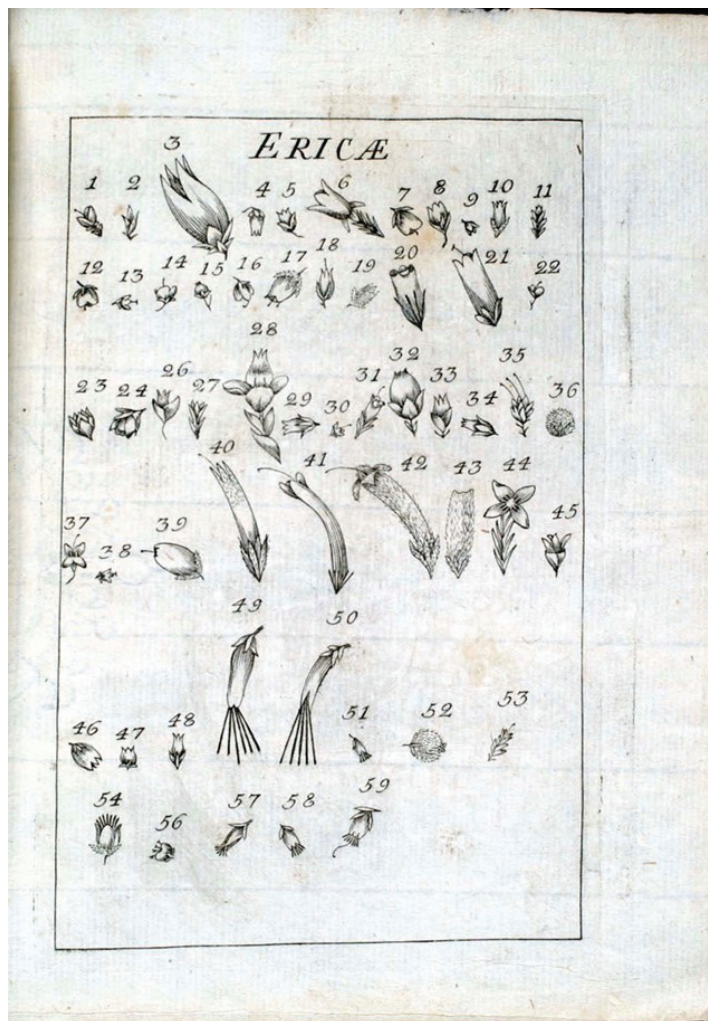 ERICÆ
1 2 3 4 5 6 7 8 9 10 11
12 13 14 15 16 17 18 19 20 21 22
23 24 26 27 28 29 30 31 32 33 34 35 36
37 38 39 40 41 42 43 44 45
46 47 48 49 50 51 52 53
54 56 57 58 59